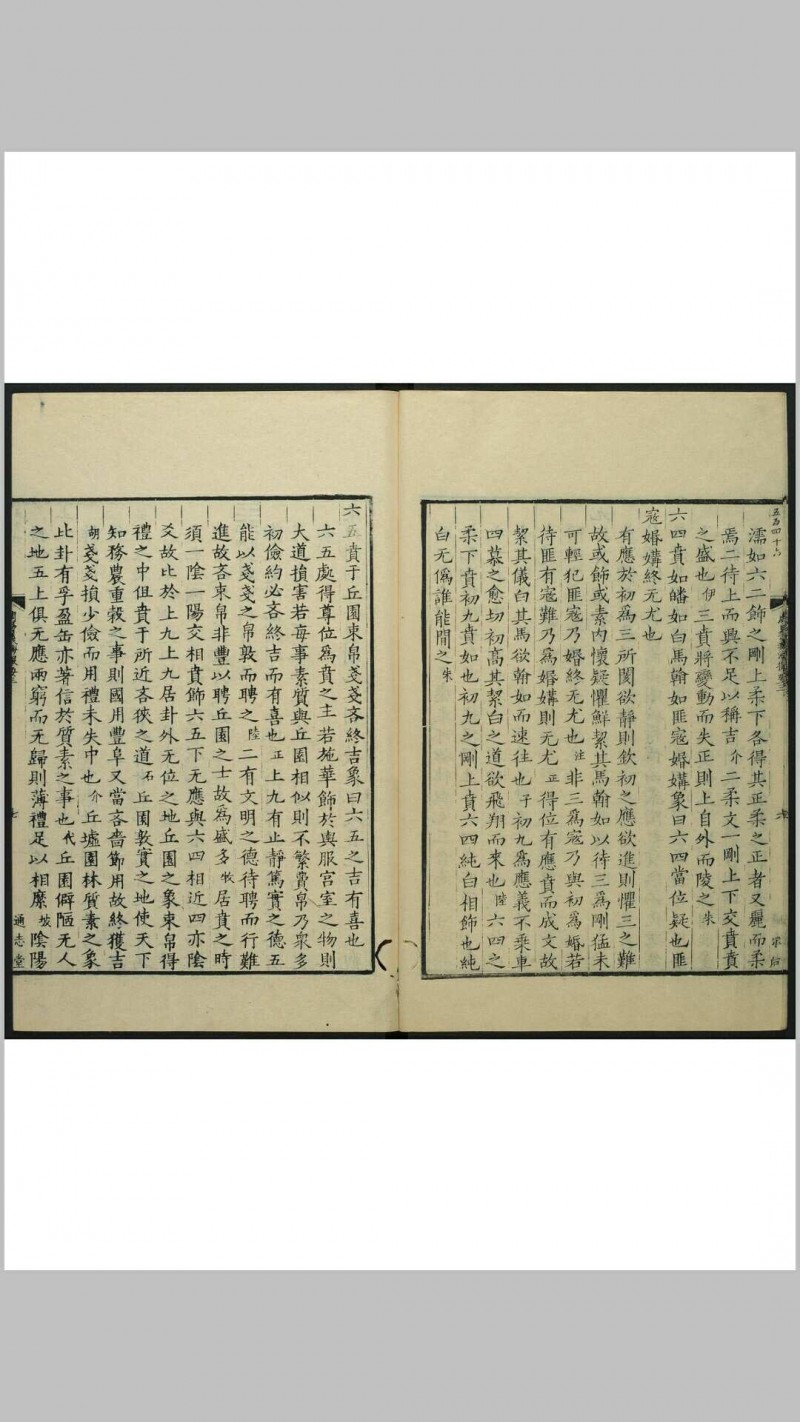 五百四十六
濡如六二飾之剛上柔下各得其正柔之正者又麗而柔
焉二待上而興不足以稱吉介二柔文一剛上下交賁賁
之盛也伊三賁將變動而失正則上自外而陵之朱
六四賁如皤如白馬翰如匪寇婚媾象曰六四當位疑也匪
寇婚媾終无尤也
有應於初為三所閡欲靜則欽初之應欲進則懼三之難
故或飾或素內懷疑懼鮮絜其馬翰如以待三為剛猛未
可輕犯匪寇乃婚終无尤也注非三為寇乃與初為婚若
待匪有寇難乃為婚媾則无尤正得位有應賁而成文故
絜其儀白其馬欲翰如而速往也子初九為應義不乘車
四慕之愈切初高其絜白之道欲飛翔而來也陸六四之
柔下賁初九賁如也初九之剛上賁六四純白相飾也純
白无偽誰能閒之朱
六五賁于丘園束帛戔戔吝終吉象曰六五之吉有喜也
六五處得尊位為賁之主若施華飾於輿服宮室之物則
大道損害若每事素質與丘園相似則不繁費帛乃衆多
初儉約必吝終吉而有喜也正上九有止靜篤實之德五
能以戔戔之帛敦而聘之陸二有文明之德待聘而行難
進故吝束帛非豐以聘丘園之士故為盛多牧居賁之時
須一陰一陽交相賁飾六五下无應與六四相近四亦陰
爻故比於上九上九居卦外无位之地丘園之象束帛得
禮之中伹賁于所近吝狹之道石丘園敦實之地使天下
知務農重穀之事則國用豐阜又當吝嗇節用故終獲吉
胡戔戔損少儉而用禮未失中也介丘墟園林質素之象
此卦有孚盈缶亦著信於質素之事也代丘園僻陋无人
之地五上俱无應兩窮而无歸則薄禮足以相縻坡陰陽
通志堂